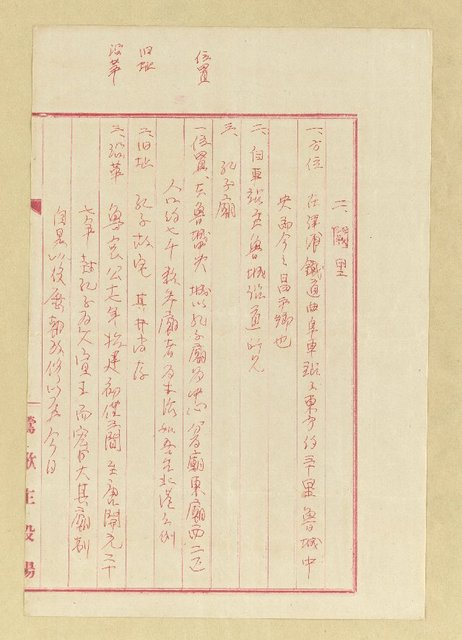 位置
旧址
沿革
二、闕里
一、方位 在津浦鐵道曲阜車站之東方約二十里魯城中
央而今之昌平鄉也
二、自車站至魯城沿道所見
三、孔子廟
一位置、在魯城中央 城以孔子廟為中心 分為廟東廟西二区
人口約七千 数年廟者為生活如吾台北港之例
二旧址 孔子故宅 其井尚存
三、沿革 魯哀公十七年始建初僅三間 至唐開元二十
七年 封孔子為文宣王 而宏大其廟制
自是以後歷朝改修以至今日
鶯歌庄役場